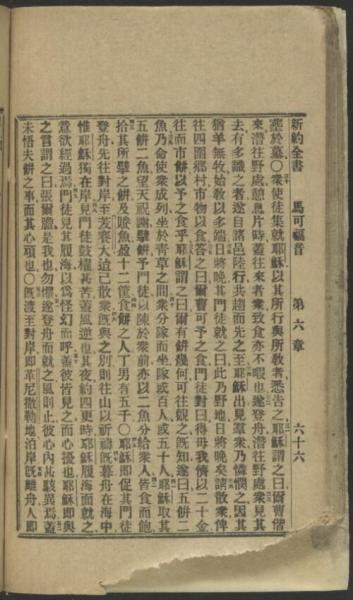 新約全書 馬可福音 第六章 六十六
墓於墓〇衆使徒集就耶穌以其所行與所教者悉吿之耶穌謂之曰爾曹偕
來潛往野處憩息片時蓋往來者衆致食亦不暇也遂登舟潛往野處衆見其
去有多識之者遂自諸邑陸行共趨而先之至耶穌出見羣衆乃憐憫之因其
猶羊無牧始教以多端日將晚門徒就之曰此乃野地日將晚矣請散衆俾
往四圍鄉村市物以食答之曰爾曹可予之食門徒對曰得毋我儕以二十金
往而市餅以予之食乎耶穌謂之曰爾有餅幾何可往觀之旣知遂曰五餅二
魚乃命使衆成列坐於青草之間衆分隊而坐隊或百人或五十人耶穌取其
五餅二魚望天祝謝擘餅予門徒以陳於衆前亦以二魚分給衆人皆食而飽
拾其所擘之餅及賸魚盈十二筐食餅之人丁男有五千〇耶穌卽促其門徒
登舟先往對岸至伯賽大迨己散衆旣與之別則往山以祈禱旣暮舟在海中
惟耶穌獨在岸見門徒鼓櫂甚苦蓋風逆也其夜約四更時耶穌履海而就之
意欲經過焉門徒見其履海以爲怪幻而呼焉彼皆見之而心擾也耶穌卽與
之言謂之曰爾膽是我也勿懼遂登舟而就之風則止彼心內甚駭異焉蓋
未悟夫餅之事而其心頑也〇旣渡至對岸卽革尼撒勒地泊岸旣離舟人卽